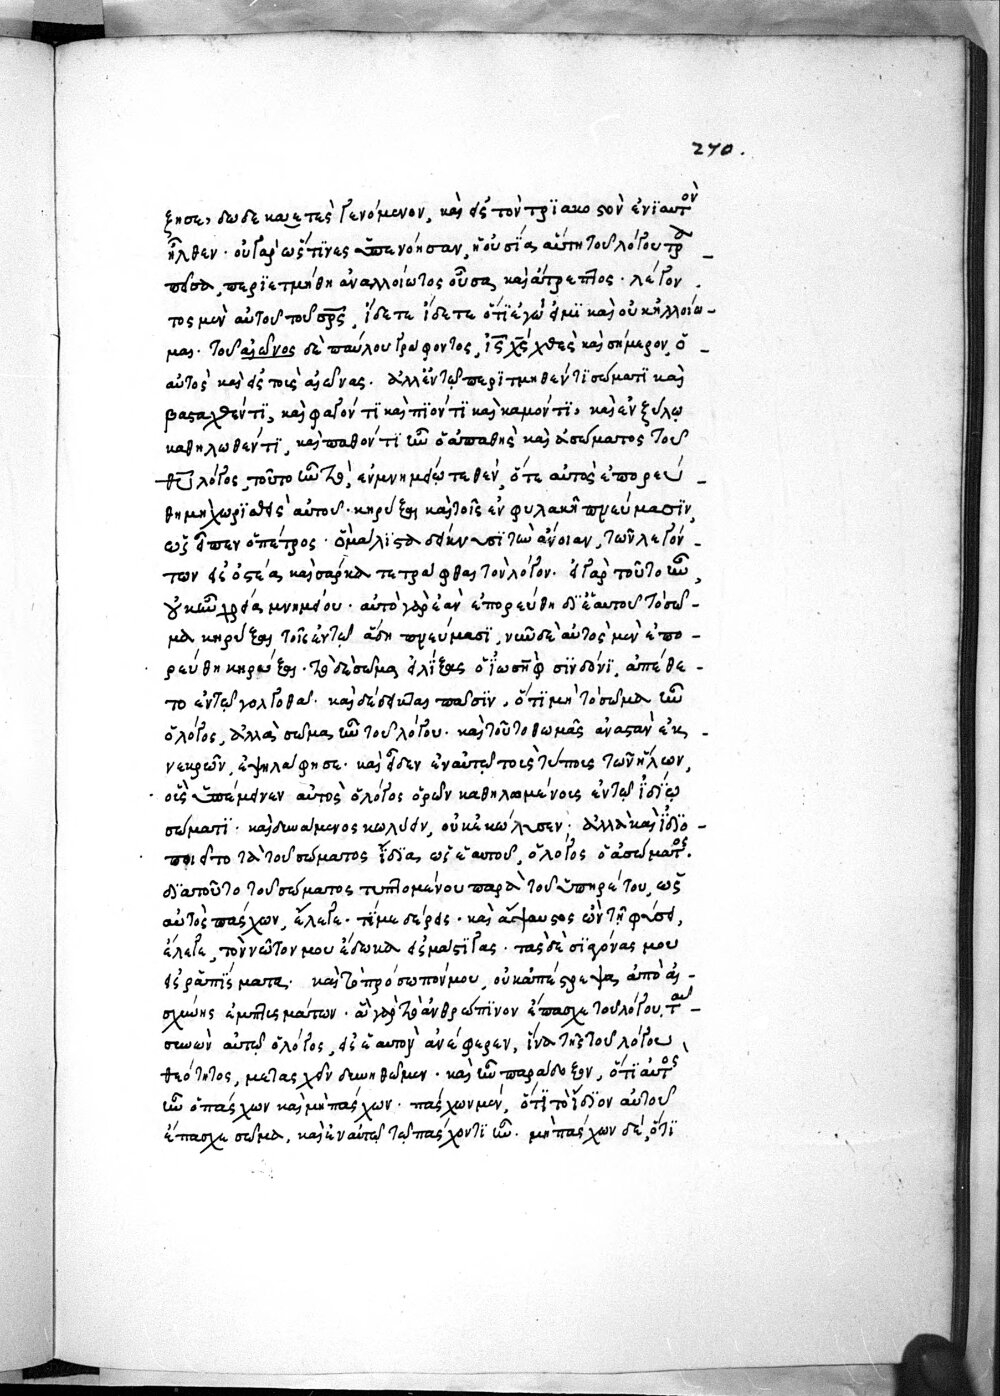 270.
ξησε, δωδεκαετὴς γενόμενον, καὶ εἰς τὸν τριακοστὸν ἐνιαυτὸν
ἦλθεν· οὐ γὰρ ὥς τινες ὑπενόησαν, ἡ οὐσία αὕτη τοῦ λόγου τρα-
πεῖσα, περιετμήθη ἀναλλοίωτος οὖσα, καὶ ἄτρεπτος· λέγον-
τος μὲν αὐτοῦ τοῦ σρς̅, ἴδετε ἴδετε ὅτι ἐγώ εἰμι καὶ οὐκ ἠλλοίω-
μαι· τοῦ αἰῶνος δὲ παύλου γράφοντος, ις̅ χς̅ χθὲς καὶ σήμερον, ὁ
αὐτὸς καὶ εἰς τοὺς αἰῶνας· ἀλλ' ἐν τῷ περιτμηθέντι σώματι καὶ
βασταχθέντι, καὶ φαγόντι καὶ πιόντι καὶ καμόντι, καὶ ἐν ξύλῳ
καθηλωθέντι, καὶ παθόντι ἦν ὁ ἀπαθὴς καὶ ἀσώματος τοῦ
θυ̅ λόγος, τοῦτο ἦν τὸ, ἐν μνημείῳ τεθὲν, ὅτε αὐτὸς ἐπορεύ-
θη μὴ χωρισθεὶς αὐτοῦ· κηρύξαι καὶ τοῖς ἐν φυλακῇ πνεύμασιν,
ὡς εἶπεν ὁ πέτρος· ὃ μάλιστα δείκνυσι τὴν ἄνοιαν, τῶν λεγόν-
των εἰς ὀστέα, καὶ σάρκα τετράφθαι τὸν λόγον· εἰ γὰρ τοῦτο ἦν,
οὐκ ἦν χρεία μνημείου· αὐτὸ γὰρ ἐὰν ἐπορεύθη δι' ἑαυτοῦ τὸ σῶ-
μα κηρύξαι τοῖς ἐν τῷ ἅδῃ πνεύμασι, νῦν δὲ αὐτὸς μὲν ἐπο-
ρεύθη κηρύξαι· τὸ δὲ σῶμα εἱλίξας ὁ ἰωσὴφ σινδόνι, ἀπέθε-
το ἐν τῷ γολγοθᾷ· καὶ δέδεικται πᾶσιν, ὅτι μὴ τὸ σῶμα ἦν
ὁ λόγος, ἀλλὰ σῶμα ἦν τοῦ λόγου· καὶ τοῦτο θωμᾶς ἀναστὰν ἐκ
νεκρῶν, ἐψηλάφησε· καὶ εἶδεν ἐν αὐτῷ τοὺς τύπους τῶν ἥλων,
οὓς ὑπέμεινεν αὐτὸς ὁ λόγος ὁρῶν καθηλωμένους ἐν τῷ ἰδίῳ
σώματι· καὶ δυνάμενος κωλύειν, οὐκ ἐκώλυσεν· ἀλλὰ καὶ ἰδιο-
ποιεῖτο τὰ τοῦ σώματος ἴδια ὡς ἑαυτοῦ, ὁ λόγος ὁ ἀσώματος·
διὰ ποῦτο τοῦ σώματος τυπτομένου παρὰ τοῦ ὑπηρέτου, ὡς
αὐτὸς πάσχων, ἔλεγε· τί με δέρεις· καὶ ἄψαυστος ὢν τῇ φύσει,
ἔλεγε, τὸν νῶτόν μου ἔδωκα εἰς μάστιγας· τὰς δὲ σιαγόνας μου
εἰς ῥαπίσματα· καὶ τὸ πρόσωπόν μου, οὐκ ἀπέστρεψα ἀπὸ αἰ-
σχύνης ἐμπτυσμάτων· ἃ γὰρ τὸ ἀνθρώπινον ἔπασχε τοῦ λόγου, ταῦ-
συνὼν αὐτῷ ὁ λόγος, εἰς ἑαυτὸν ἀνέφερεν, ἵνα τῆς τοῦ λόγου
θεότητος, μετασχεῖν δυνηθῶμεν· καὶ ἦν παράδοξον, ὅτι αὐτὸς
ἦν ὁ πάσχων καὶ μὴ πάσχων· πάσχων μέν, ὅτι τὸ ἴδιον αὐτοῦ
ἔπασχε σῶμα, καὶ ἐν αὐτῷ τῷ πάσχοντι ἦν· μὴ πάσχων δέ, ὅτι